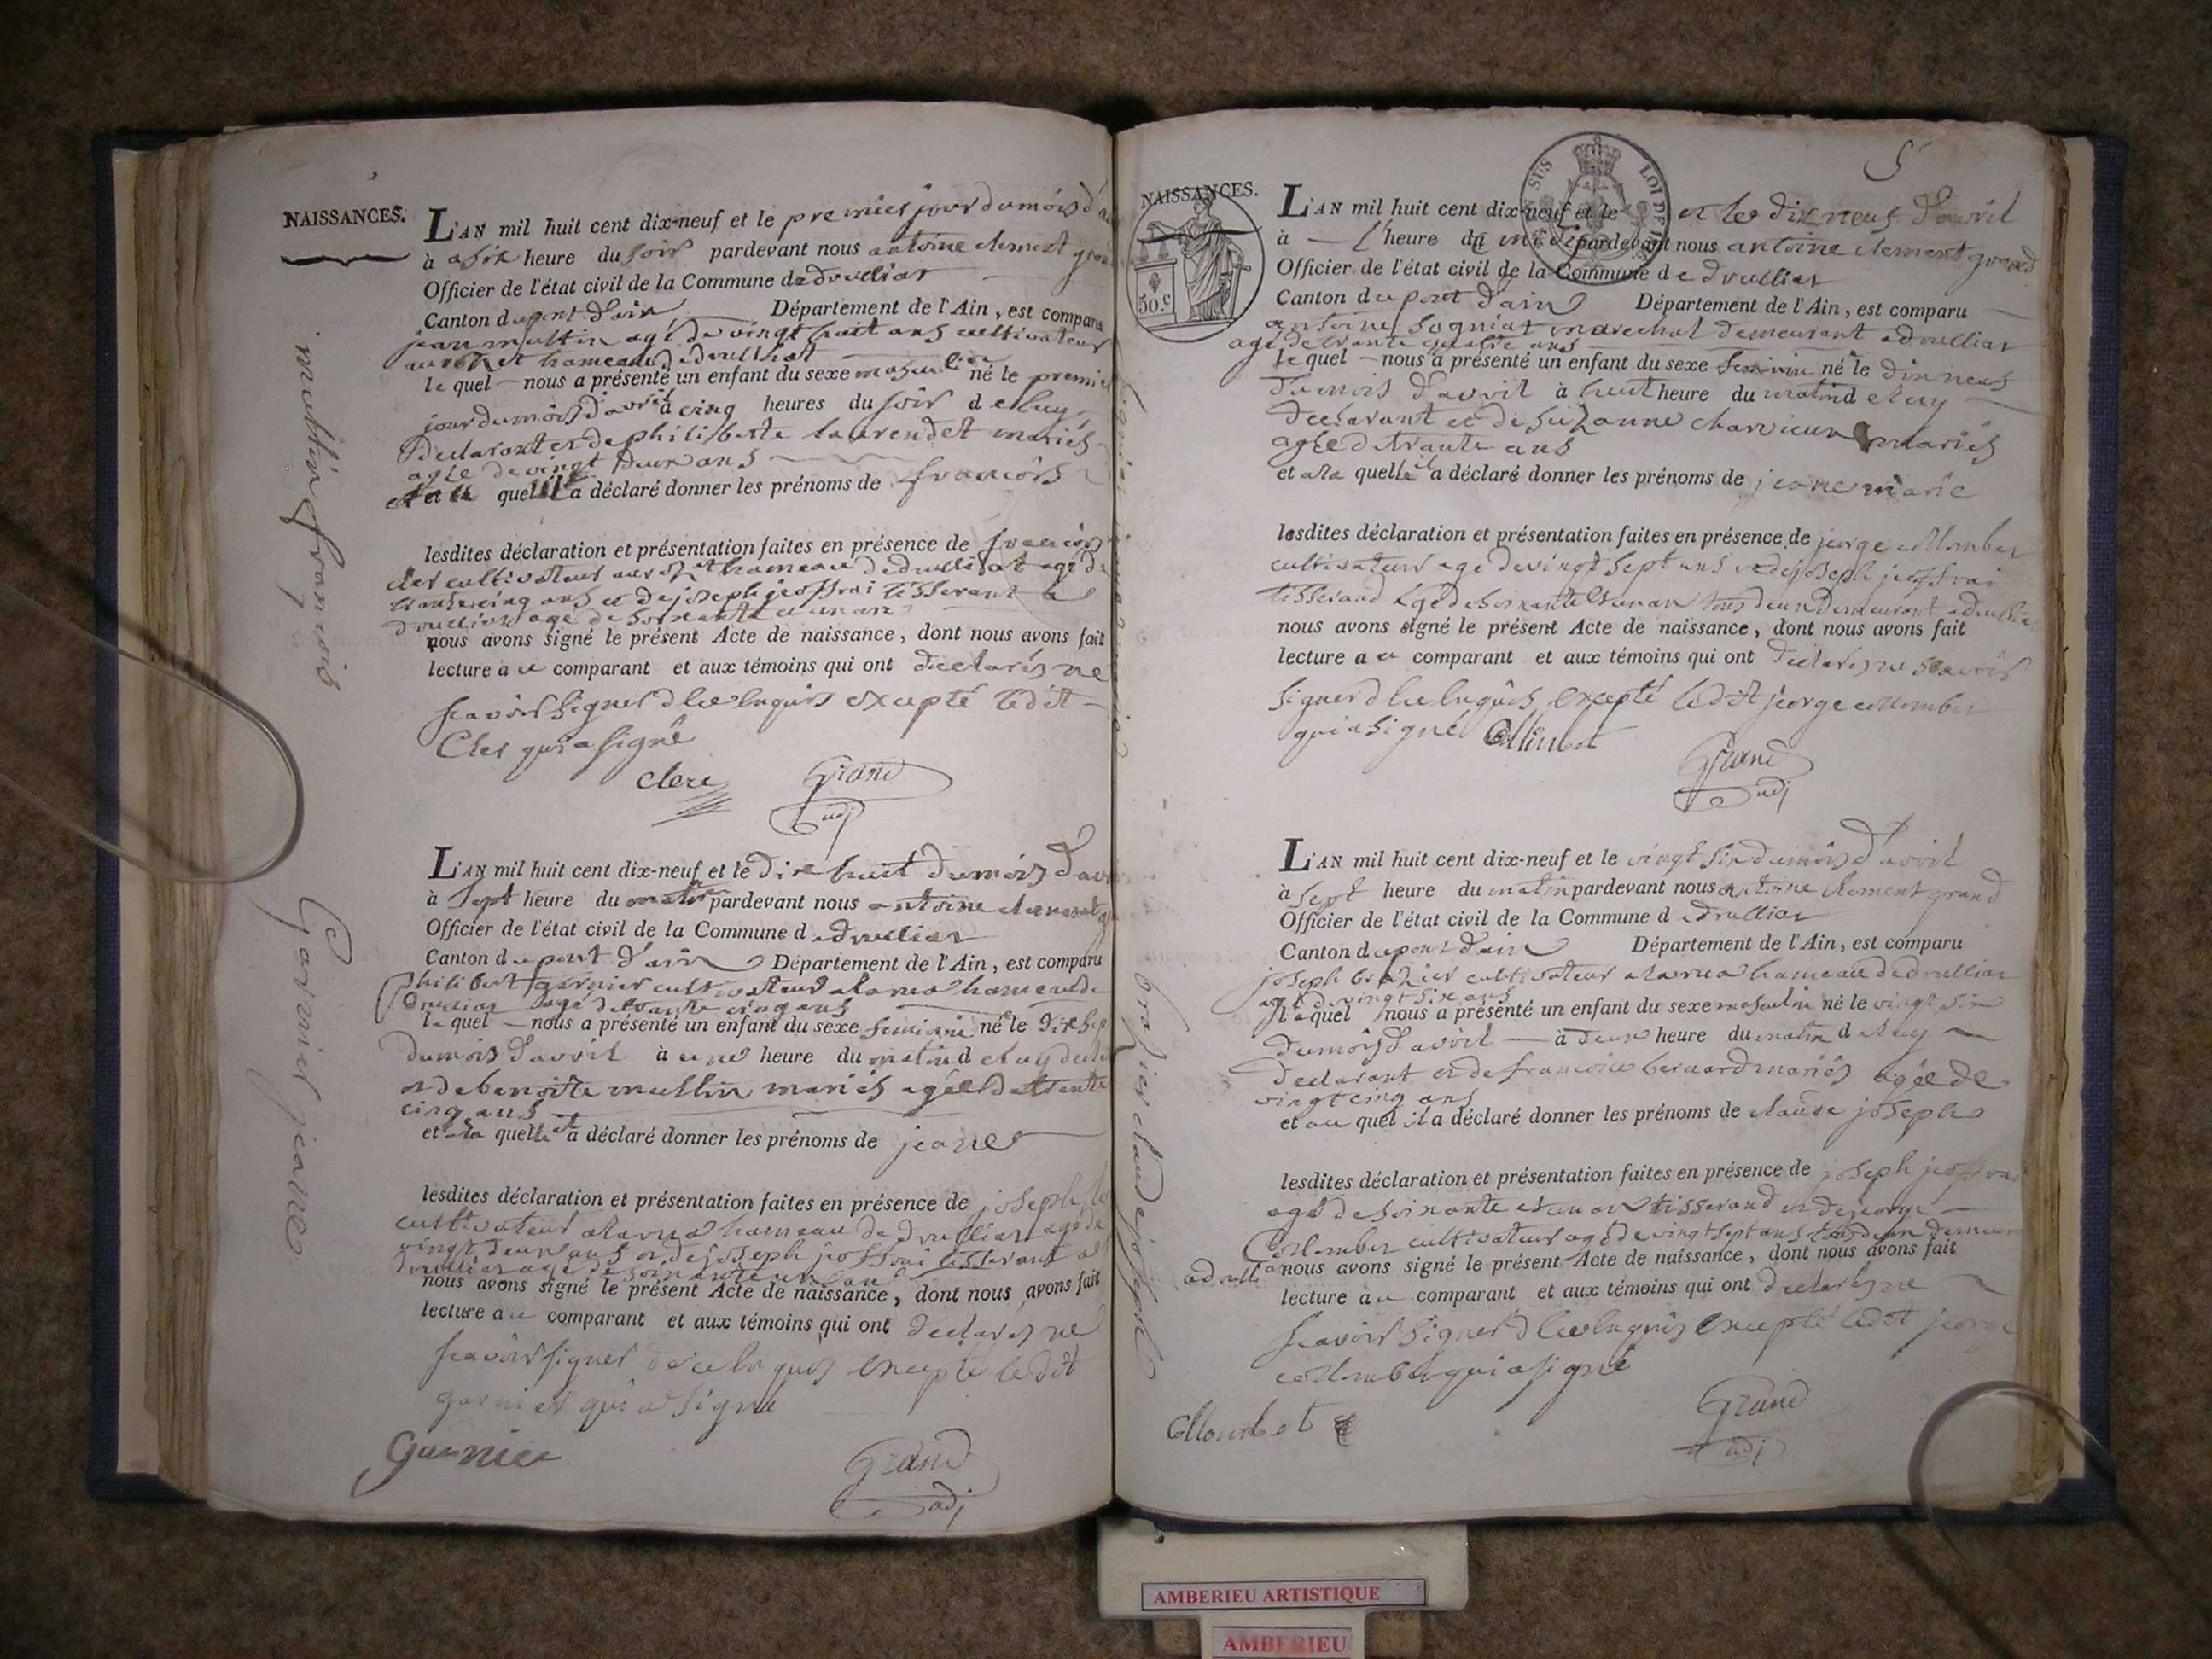 NAISSANCES.
L'AN mil huit cent dix-neuf et le premier jour du mois d'a
à a six heure du soir pardevant nous antoine clement gran
Officier de l'état civil de la Commune de druilliat
Canton du pont d'ain Département de l'Ain, est comparu
jean multin agé de vingt huit ans cultivateur
hameau de druilliat
le quel nous a présenté un enfant du sexe masculin né le premier
jour du mois d'avril à cinq heures du soir de luy
declarant et de philiberte laurendet mariés
agée de vingt deux ans
quel il a déclaré donner les prénoms de francois
lesdites déclaration et présentation faites en présence de francois
cler cultivateur hameau de druilliat agé de
trante cinq ans et de joseph jeoffrai tisserant a
druilliat agé de soixante et un an
nous avons signé le présent Acte de naissance, dont nous avons fait
lecture a ce comparant et aux témoins qui ont declarés ne
scavoir signer de ce enquis excepté ledit
Cler qui a signé
clerc Grand
adj
multin francois
L'AN mil huit cent dix-neuf et le dix huit du mois d'avr
à sept heure du matin pardevant nous antoine clement
Officier de l'état civil de la Commune de druilliat
Canton du pont d'ain Département de l'Ain, est comparu
philibert garnier cultivateur a larna hameau de
druillias agé de trante cinq ans
le quel nous a présenté un enfant du sexe feminin né le dix sep
du mois d'avril à une heure du matin de luy decla
et de benoite multin mariés agée de trante
cinq ans
et a la quelle a déclaré donner les prénoms de jeane
lesdites déclaration et présentation faites en présence de joseph
cultivateur a larna hameau de druilliat agé de
vingt deux ans et de joseph jeoffrai tisserant a
druillias agé de soixante un an
nous avons signé le présent Acte de naissance, dont nous avons fait
lecture a ce comparant et aux témoins qui ont declarés ne
scavoir signer de ce enquis excepté ledit
garnier qui a signé
Garnier Grand
adj
Garnier jeane
5
NAISSANCES.
50.c
L'AN mil huit cent dix-neuf et le et le dix neuf d'avril
à l heure de midi pardevant nous antoine clement grand
Officier de l'état civil de la Commune de druilliat
Canton du pont d'ain Département de l'Ain, est comparu
antoine sogniat marechal demeurant a druilliat
agé de trante quatre ans
le quel nous a présenté un enfant du sexe feminin né le dix neuf
du mois d'avril à huit heure du matin de luy
declarant et de suzanne charvieux mariés
agée de trante ans
et a la quelle il a déclaré donner les prénoms de jeane marie
lesdites déclaration et présentation faites en présence de jeorge collomber
cultivateur agé de vingt sept ans et de joseph jeoffrai
tisserand agé de soixante et un an tous deux demeurant a druillia
nous avons signé le présent Acte de naissance, dont nous avons fait
lecture a ce comparant et aux témoins qui ont declarés ne scavoir
signer de ce enquis excepté ledit jeorge collomber
qui a signé Collombet
Grand
adj
L'AN mil huit cent dix-neuf et le vingt six du mois d'avril
à sept heure du matin pardevant nous antoine clement grand
Officier de l'état civil de la Commune de druilliat
Canton du pont d'ain Département de l'Ain, est comparu
joseph brazier cultivateur a larna hameau de druilliat
agé de vingt six ans
le quel nous a présenté un enfant du sexe masculin né le vingt six
du mois d'avril à deux heure du matin de luy
declarant et de francoise bernard mariés agée de
vingt cinq ans
et au quel il a déclaré donner les prénoms de claude joseph
lesdites déclaration et présentation faites en présence de joseph jeoffrai
agé de soixante et un an tisserand et de jeorge
Collomber cultivateur agé de vingt sept ans tous deux demeur
a druillia nous avons signé le présent Acte de naissance, dont nous avons fait
lecture a ce comparant et aux témoins qui ont declarés ne
scavoir signer de ce enquis excepté ledit jeorge
collomber qui a signé
Collombet Grand
adj
brazier claude joseph
AMBERIEU ARTISTIQUE
AMBERIEU